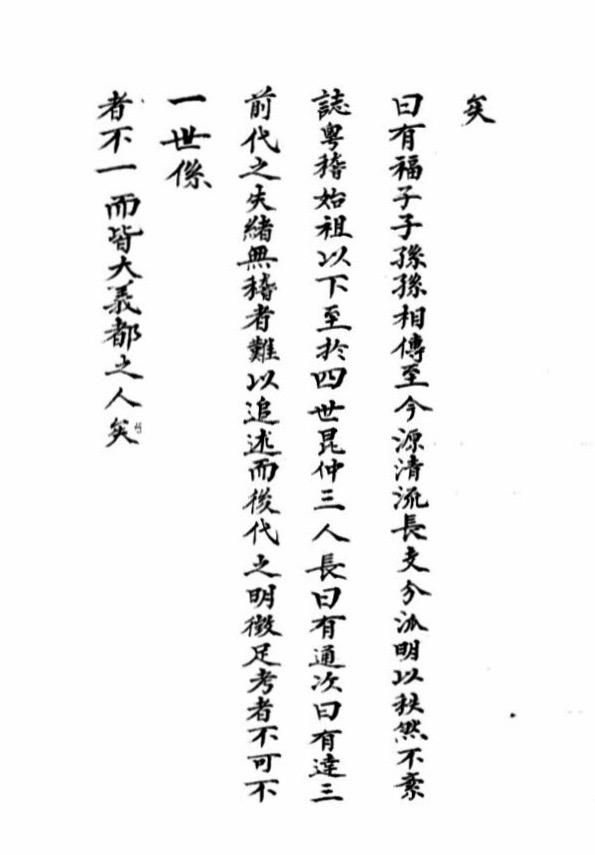 矣
曰有福子子孫孫相傳至今源清流長支分派明以秩然不紊
誌粤稽始祖以下至扵四世昆仲三人長曰有通次曰有達三
前代之失緒無稽者難以追述而後代之明徵足考者不可不
一世係
者不一而皆大義都之人矣